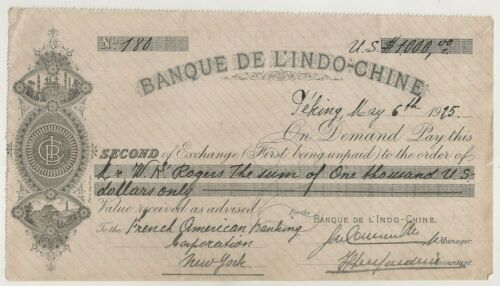 No 180 U.S. $1000,00
BANQUE DE L'INDO-CHINE
Péking, May 6th 1925.
On Demand Pay this
SECOND of Exchange (First being unpaid) to the order of
Mr. W. R. Rogers the sum of One thousand U.S.
dollars only
Value received as advised.
For the BANQUE DE L'INDO-CHINE.
To the French American Banking
Corporation
New York.
Manager.
Accountant.